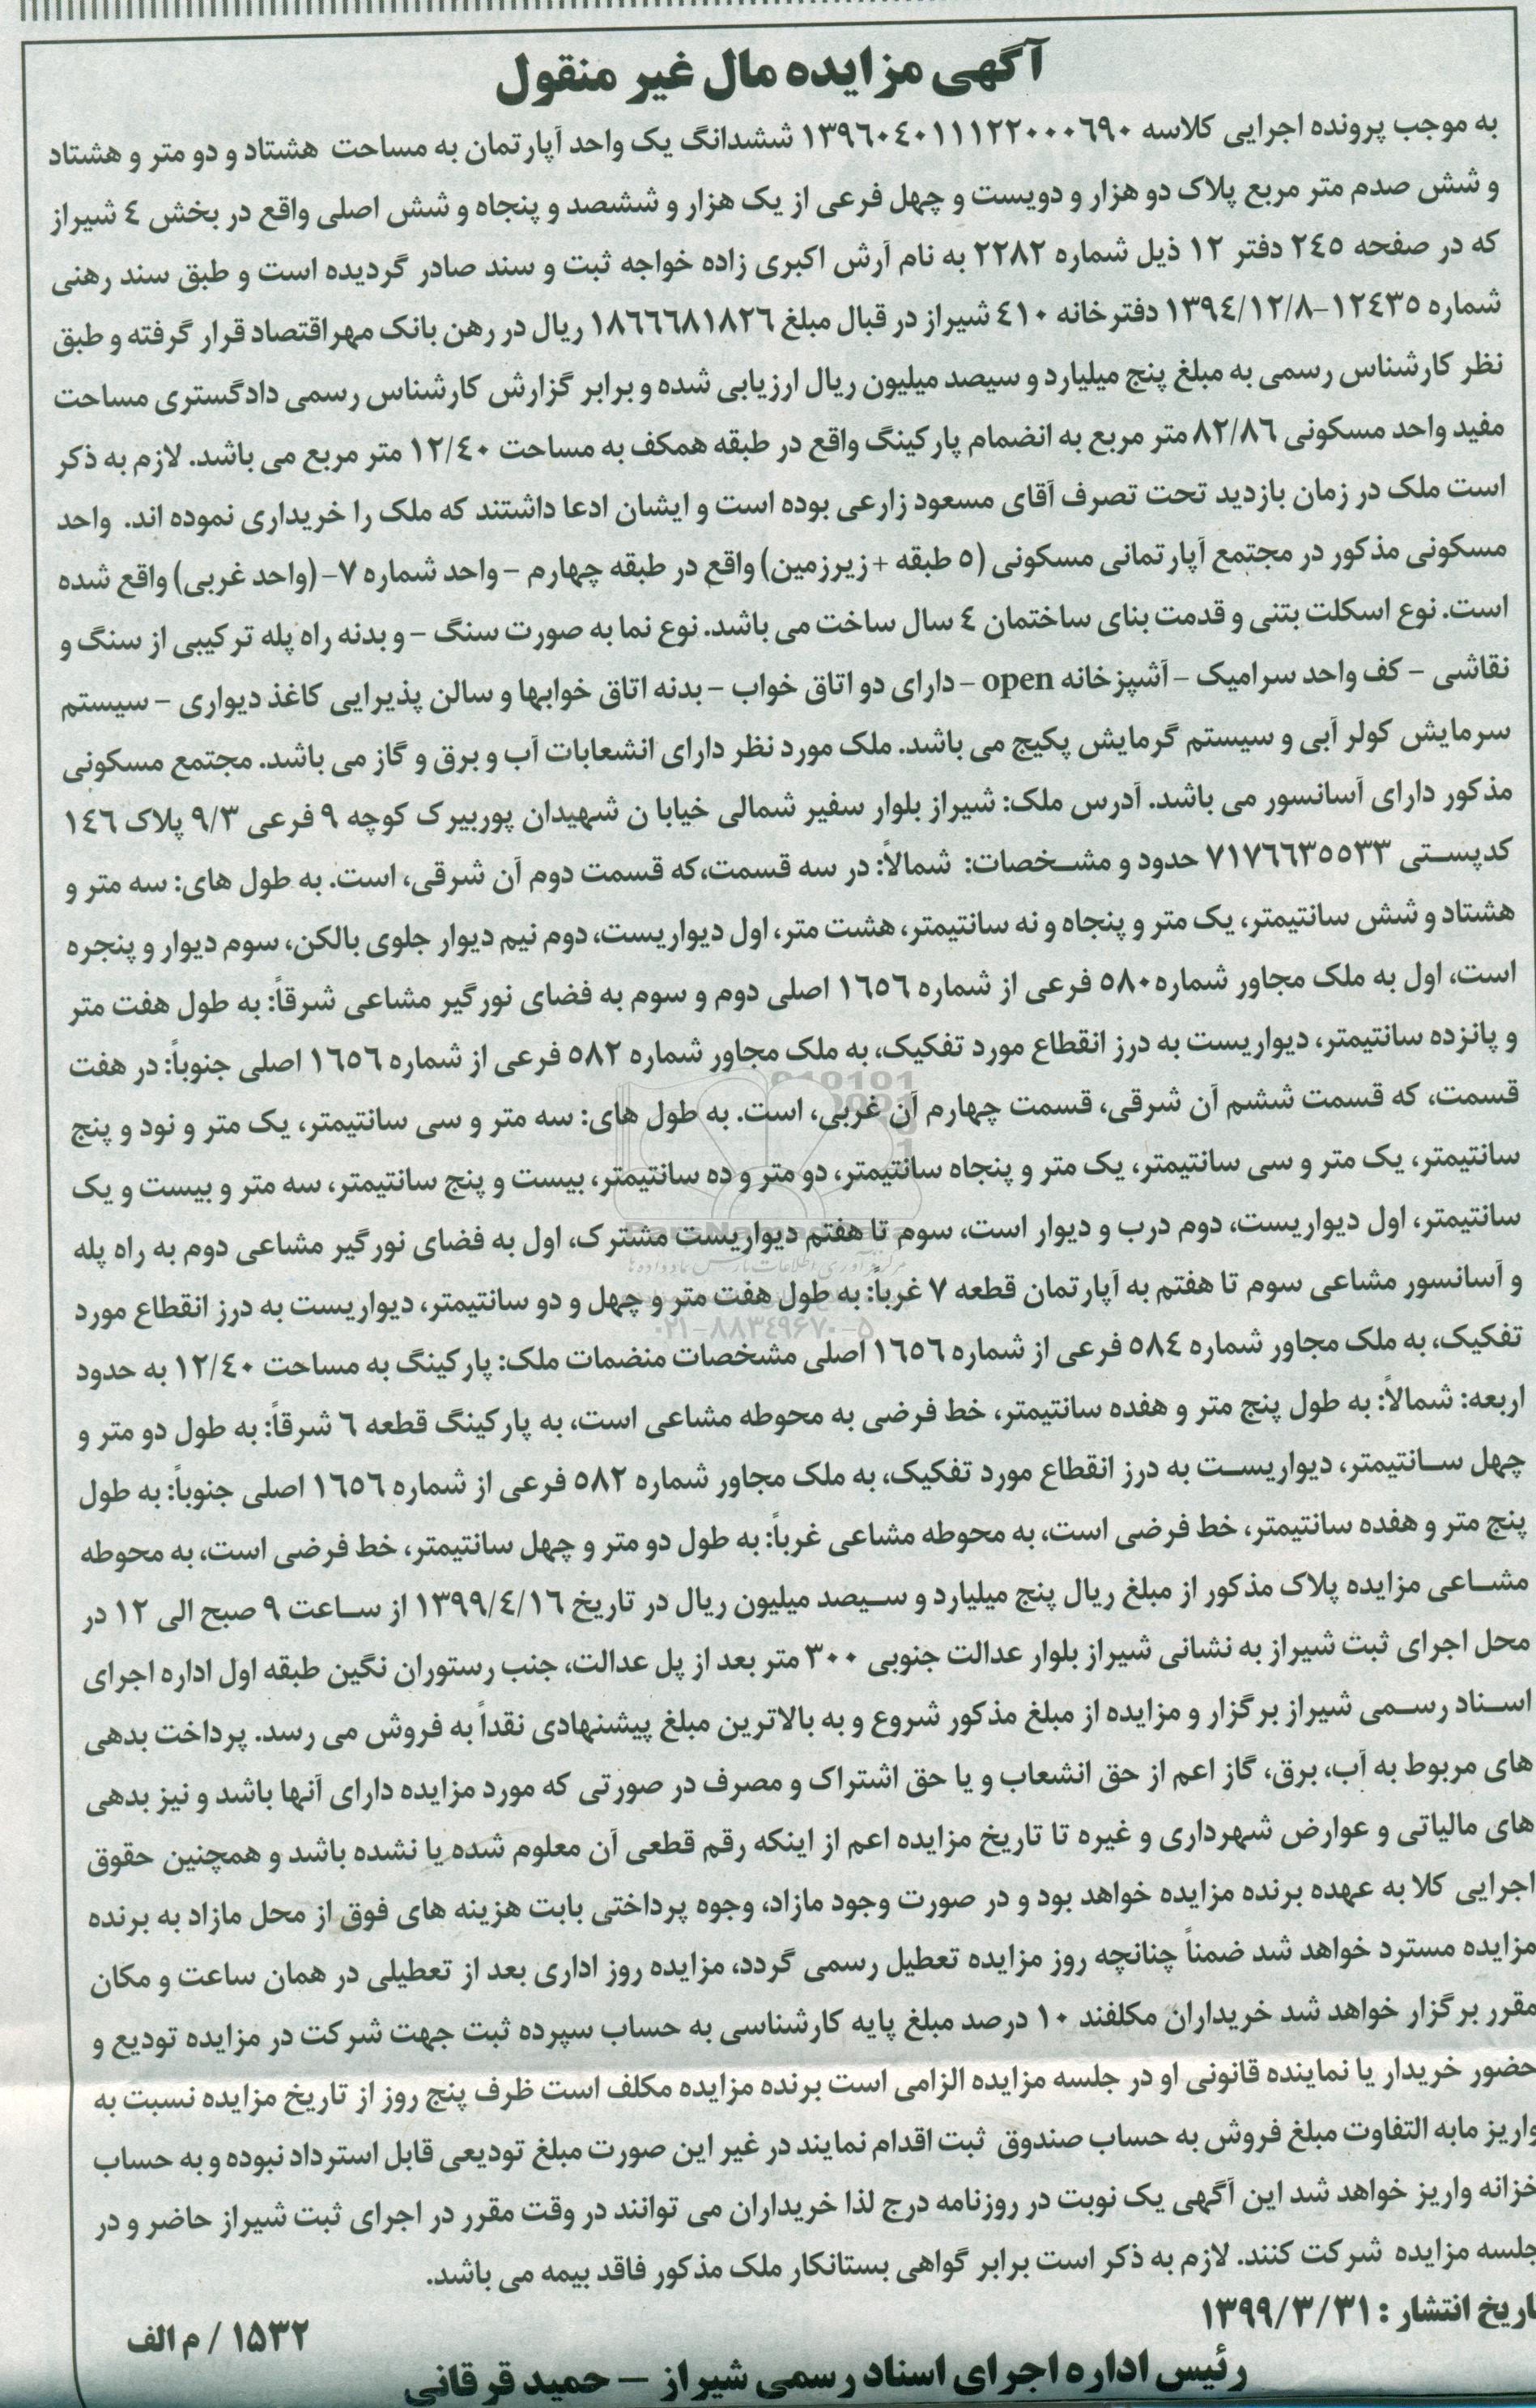 آگهی مزایده مال غیر منقول
به موجب پرونده اجرایی کلاسه ۱۳۹۶۰۴۰۱۱۱۲۲۰۰۰۶۹۰ ششدانگ یک واحد آپارتمان به مساحت هشتاد و دو متر و هشتاد
و شش صدم متر مربع پلاک دو هزار و دویست و چهل فرعی از یک هزار و ششصد و پنجاه و شش اصلی واقع در بخش ۴ شیراز
که در صفحه ۲۴۵ دفتر ۱۲ ذیل شماره ۲۲۸۲ به نام آرش اکبری زاده خواجه ثبت و سند صادر گردیده است و طبق سند رهنی
شماره ۱۲۴۳۵–۱۳۹۴/۱۲/۸ دفترخانه ۴۱۰ شیراز در قبال مبلغ ۱۸۶۶۶۸۱۸۲۶ ریال در رهن بانک مهراقتصاد قرار گرفته و طبق
نظر کارشناس رسمی به مبلغ پنج میلیارد و سیصد میلیون ریال ارزیابی شده و برابر گزارش کارشناس رسمی دادگستری مساحت
مفید واحد مسکونی ۸۲/۸۶ متر مربع به انضمام پارکینگ واقع در طبقه همکف به مساحت ۱۲/۴۰ متر مربع می باشد. لازم به ذکر
است ملک در زمان بازدید تحت تصرف آقای مسعود زارعی بوده است و ایشان ادعا داشتند که ملک را خریداری نموده اند. واحد
مسکونی مذکور در مجتمع آپارتمانی مسکونی (۵ طبقه + زیرزمین) واقع در طبقه چهارم – واحد شماره ۷– (واحد غربی) واقع شده
است. نوع اسکلت بتنی و قدمت بنای ساختمان ۴ سال ساخت می باشد. نوع نما به صورت سنگ – و بدنه راه پله ترکیبی از سنگ و
نقاشی – کف واحد سرامیک – آشپزخانه open – دارای دو اتاق خواب – بدنه اتاق خوابها و سالن پذیرایی کاغذ دیواری – سیستم
سرمایش کولر آبی و سیستم گرمایش پکیج می باشد. ملک مورد نظر دارای انشعابات آب و برق و گاز می باشد. مجتمع مسکونی
مذکور دارای آسانسور می باشد. آدرس ملک: شیراز بلوار سفیر شمالی خیابا ن شهیدان پوربیرک کوچه ۹ فرعی ۹/۳ پلاک ۱۴۶
کدپستی ۷۱۷۶۶۳۵۵۳۳ حدود و مشخصات: شمالاً: در سه قسمت،که قسمت دوم آن شرقی، است. به طول های: سه متر و
هشتاد و شش سانتیمتر، یک متر و پنجاه و نه سانتیمتر، هشت متر، اول دیواریست، دوم نیم دیوار جلوی بالکن، سوم دیوار و پنجره
است، اول به ملک مجاور شماره۵۸۰ فرعی از شماره ۱۶۵۶ اصلی دوم و سوم به فضای نورگیر مشاعی شرقاً: به طول هفت متر
و پانزده سانتیمتر، دیواریست به درز انقطاع مورد تفکیک، به ملک مجاور شماره ۵۸۲ فرعی از شماره ۱۶۵۶ اصلی جنوباً: در هفت
قسمت، که قسمت ششم آن شرقی، قسمت چهارم آن غربی، است. به طول های: سه متر و سی سانتیمتر، یک متر و نود و پنج
سانتیمتر، یک متر و سی سانتیمتر، یک متر و پنجاه سانتیمتر، دو متر و ده سانتیمتر، بیست و پنج سانتیمتر، سه متر و بیست و یک
سانتیمتر، اول دیواریست، دوم درب و دیوار است، سوم تا هفتم دیواریست مشترک، اول به فضای نورگیر مشاعی دوم به راه پله
و آسانسور مشاعی سوم تا هفتم به آپارتمان قطعه ۷ غرباً: به طول هفت متر و چهل و دو سانتیمتر، دیواریست به درز انقطاع مورد
۰۲۱-۸۸۳۴۹۶۷۰-۵
تفکیک، به ملک مجاور شماره ۵۸۴ فرعی از شماره ۱۶۵۶ اصلی مشخصات منضمات ملک: پارکینگ به مساحت ۱۲/۴۰ به حدود
اربعه: شمالاً: به طول پنج متر و هفده سانتیمتر، خط فرضی به محوطه مشاعی است، به پارکینگ قطعه ۶ شرقاً: به طول دو متر و
چهل سانتیمتر، دیواریست به درز انقطاع مورد تفکیک، به ملک مجاور شماره ۵۸۲ فرعی از شماره ۱۶۵۶ اصلی جنوباً: به طول
پنج متر و هفده سانتیمتر، خط فرضی است، به محوطه مشاعی غرباً: به طول دو متر و چهل سانتیمتر، خط فرضی است، به محوطه
مشاعی مزایده پلاک مذکور از مبلغ ریال پنج میلیارد و سیصد میلیون ریال در تاریخ ۱۳۹۹/۴/۱۶ از ساعت ۹ صبح الی ۱۲ در
محل اجرای ثبت شیراز به نشانی شیراز بلوار عدالت جنوبی ۳۰۰ متر بعد از پل عدالت، جنب رستوران نگین طبقه اول اداره اجرای
اسناد رسمی شیراز برگزار و مزایده از مبلغ مذکور شروع و به بالاترین مبلغ پیشنهادی نقداً به فروش می رسد. پرداخت بدهی
های مربوط به آب، برق، گاز اعم از حق انشعاب و یا حق اشتراک و مصرف در صورتی که مورد مزایده دارای آنها باشد و نیز بدهی
های مالیاتی و عوارض شهرداری و غیره تا تاریخ مزایده اعم از اینکه رقم قطعی آن معلوم شده یا نشده باشد و همچنین حقوق
اجرایی کلا به عهده برنده مزایده خواهد بود و در صورت وجود مازاد، وجوه پرداختی بابت هزینه های فوق از محل مازاد به برنده
مزایده مسترد خواهد شد ضمناً چنانچه روز مزایده تعطیل رسمی گردد، مزایده روز اداری بعد از تعطیلی در همان ساعت و مکان
مقرر برگزار خواهد شد خریداران مکلفند ۱۰ درصد مبلغ پایه کارشناسی به حساب سپرده ثبت جهت شرکت در مزایده تودیع و
حضور خریدار یا نماینده قانونی او در جلسه مزایده الزامی است برنده مزایده مکلف است ظرف پنج روز از تاریخ مزایده نسبت به
واریز مابه التفاوت مبلغ فروش به حساب صندوق ثبت اقدام نمایند در غیر این صورت مبلغ تودیعی قابل استرداد نبوده و به حساب
خزانه واریز خواهد شد این آگهی یک نوبت در روزنامه درج لذا خریداران می توانند در وقت مقرر در اجرای ثبت شیراز حاضر و در
جلسه مزایده شرکت کنند. لازم به ذکر است برابر گواهی بستانکار ملک مذکور فاقد بیمه می باشد.
تاریخ انتشار : ۱۳۹۹/۳/۳۱
۱۵۳۲ / م الف
رئیس اداره اجرای اسناد رسمی شیراز – حمید قرقانی